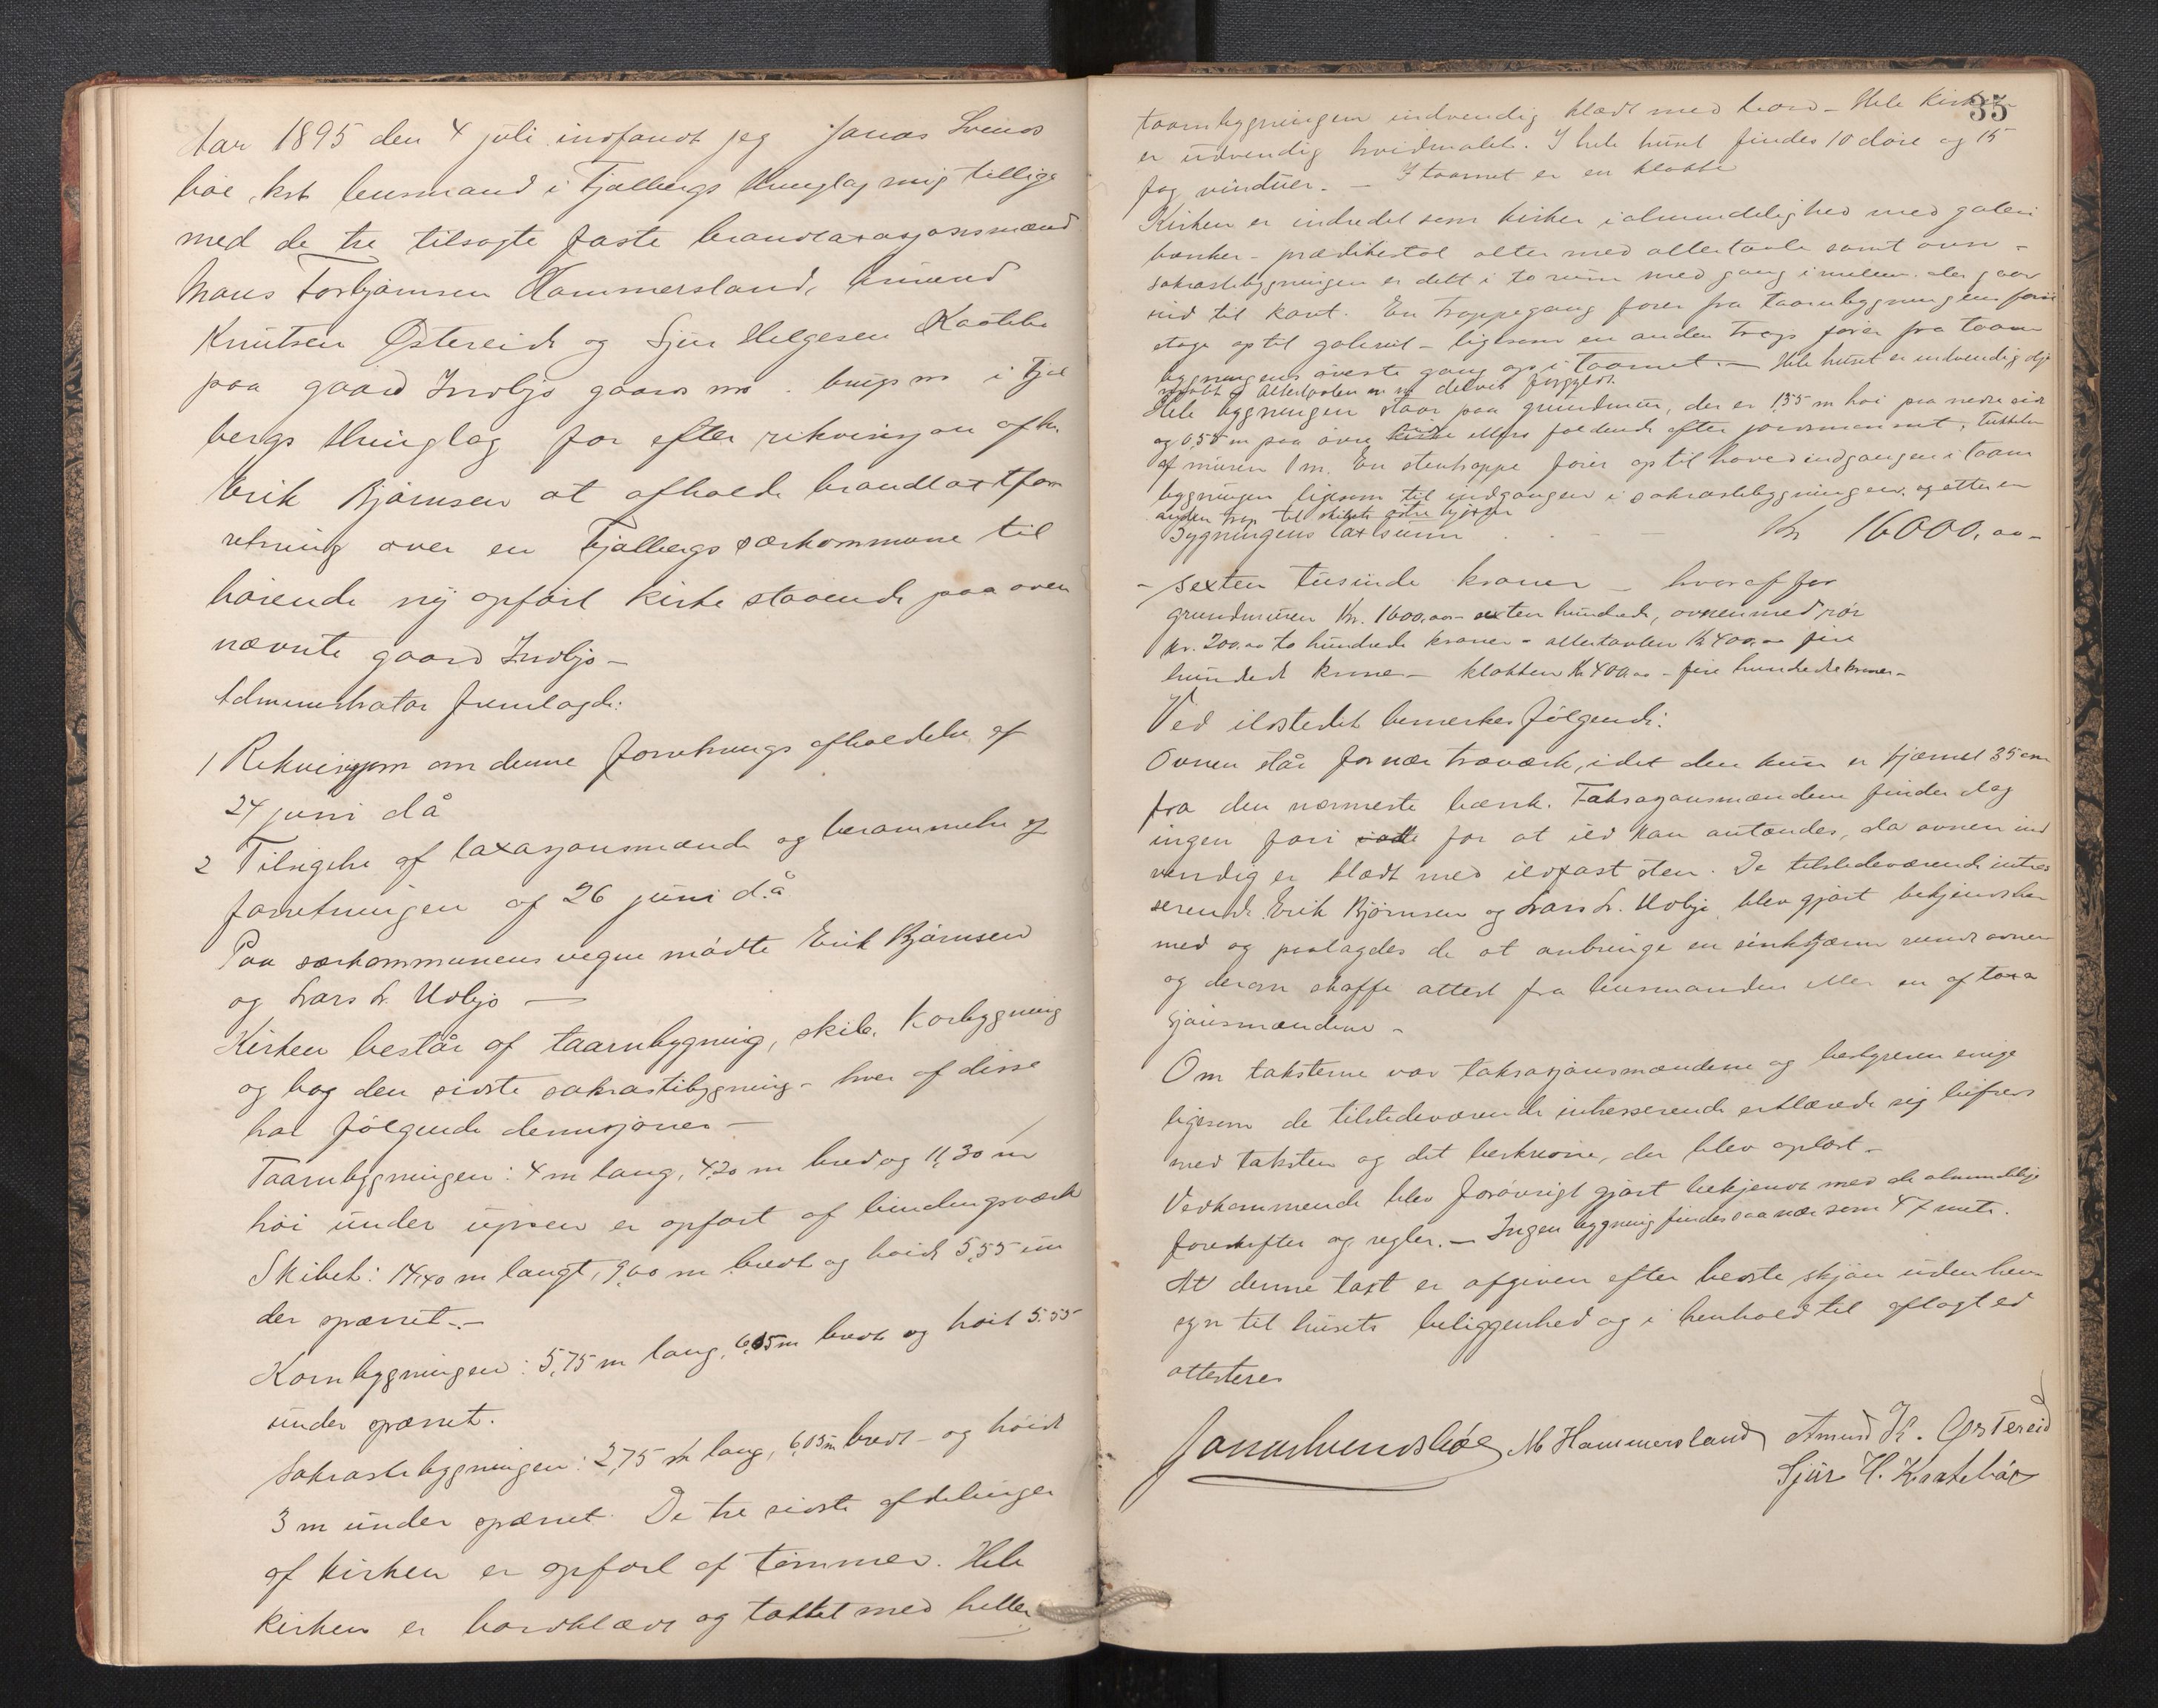 Aar 1895 den 4 juli indfandt jeg Jonas Svends
böe, kst lensmand i Fjælbergs thinglag mig tillige
med de tre tilsagte faste brandtaxasjonsmænd
Mons Torbjørnsen Hammersland, Amund
Knutsen Østereide og Sjur Helgesen Kaatebø
paa gaard Indbjo gaards no . brugs no i Fjæl
bergs thinglag for efter rekvisisjon af hr.
Erik Bjørnsen at afholde brandtaxtfor
retning over en Fjælbergs særkommune til
hørende ny opført kirke staaende paa oven
nævnte gaard Indbjo -
Administrator fremlagde:
1 Rekvisisjon om denne forretnings afholdelse af
24 juni då
2 Tilsigelse af taxasjonsmænd og berammelse af
forretningen af 26 juni då
Paa særkommunens vegne mødte Erik Bjørnsen
og Lars L. Udbjo —
Kirken består af taarnbygning, skib, Korbygning
og bag den sidste sakrastibygning - hver af disse
har følgende demisjoner -
Taarnbygningen: 4 m lang, 4,20 m bred og 11,30 m
høi under upsen er opført af bindingsværk
Skibet: 14,40 m langt, 9,00 m bredt og høidt 5,55 un
der spærret.-
Kornbygningen: 5,75 m lang, 6,05 m bredt og høit 5.55
under spærret.
Sakrastibygningen: 2,75 m lang, 6,05 m bredt - og høidt
3 m under spærret. De tre sidste afdelinger
af kirken er opført af tømmer. Hele
kirken er bordklædt og tækket med heller
35
taarnbygningen indvendig klædt med bord - Hele kirken
er udvendig hvidmalet. I hele huset findes 10 døre og 15
fag vinduer. - I taarnet er en klokke
Kirken er indredet som kirker i almindelighed med galeri
bænker - prædikestol alter med altertavle samt ovn -
sakrastibygningen er delt i to rum med gang imellem der gaar
ind til koret. En trappegang fører fra taarnbygningens første
etage op til galeriet - ligesom en anden trap fører fra taarn
bygningens øverste gang op i taarnet. - Hele huset er indvendig olje
malet og altertavlen er delvis forgyldt.
Hele bygningen staar paa grundmur, der er 1,55 m høi paa nedre side
og 0,55 m paa øvre side ellers faldende efter jordsmonnet, tykkelsen
af muren 1 m. En stentrappe fører op til hovedindgangen i taarn
bygningen ligesom til indgangen i sakrastibygningen, og atter en
anden trap til skibets østre hjørne
Bygningens taxtsum . . - - Kr 16000,00 -
- sexten tusinde kroner - hvoraf for
grundmuren Kr. 1600,00 - sexten hundrede, ovnen med rør
kr. 200,00 to hundrede kroner - altertavlen Kr 400,00 fire
hundrede krone - klokken Kr 400,00 - fire hundrede kroner -
Ved ildstedet bemerkes følgende:
Ovnen står for nær træværk, idet den kun er fjærnet 35 cm
fra den nærmeste bænk. Taksasjonsmændene finder dog
ingen fare for at ild kan antændes, da ovnen ind
vendig er klædt med ildfast sten. De tilstedeværende intres
serende Erik Bjørnsen og Lars L. Udbjo blev gjort bekjendt her
med og paalagdes de at anbringe en sinkskjærm rundt ovnen
og derom skaffe attest fra lensmanden eller en af taxa
sjonsmændene -
Om taksterne var taksasjonsmændene og bestyreren enige
ligesom de tilstedeværende intresserende erklærede sig tilfreds
med taksten og det beskrevne, der blev oplæst -
Vedkommende blev forøvrigt gjort bekjendt med de almindelige
foreskrifter og regler. - Ingen bygning findes saa nær som 47 mete.
At denne taxt er afgiven efter bedste skjøn uden hen
syn til husets beliggenhed og i henhold til aflagt ed
attesteres
Jonas Svendsbøe M Hammersland Amund K. Østereid
Sjur H. Kaatebøe